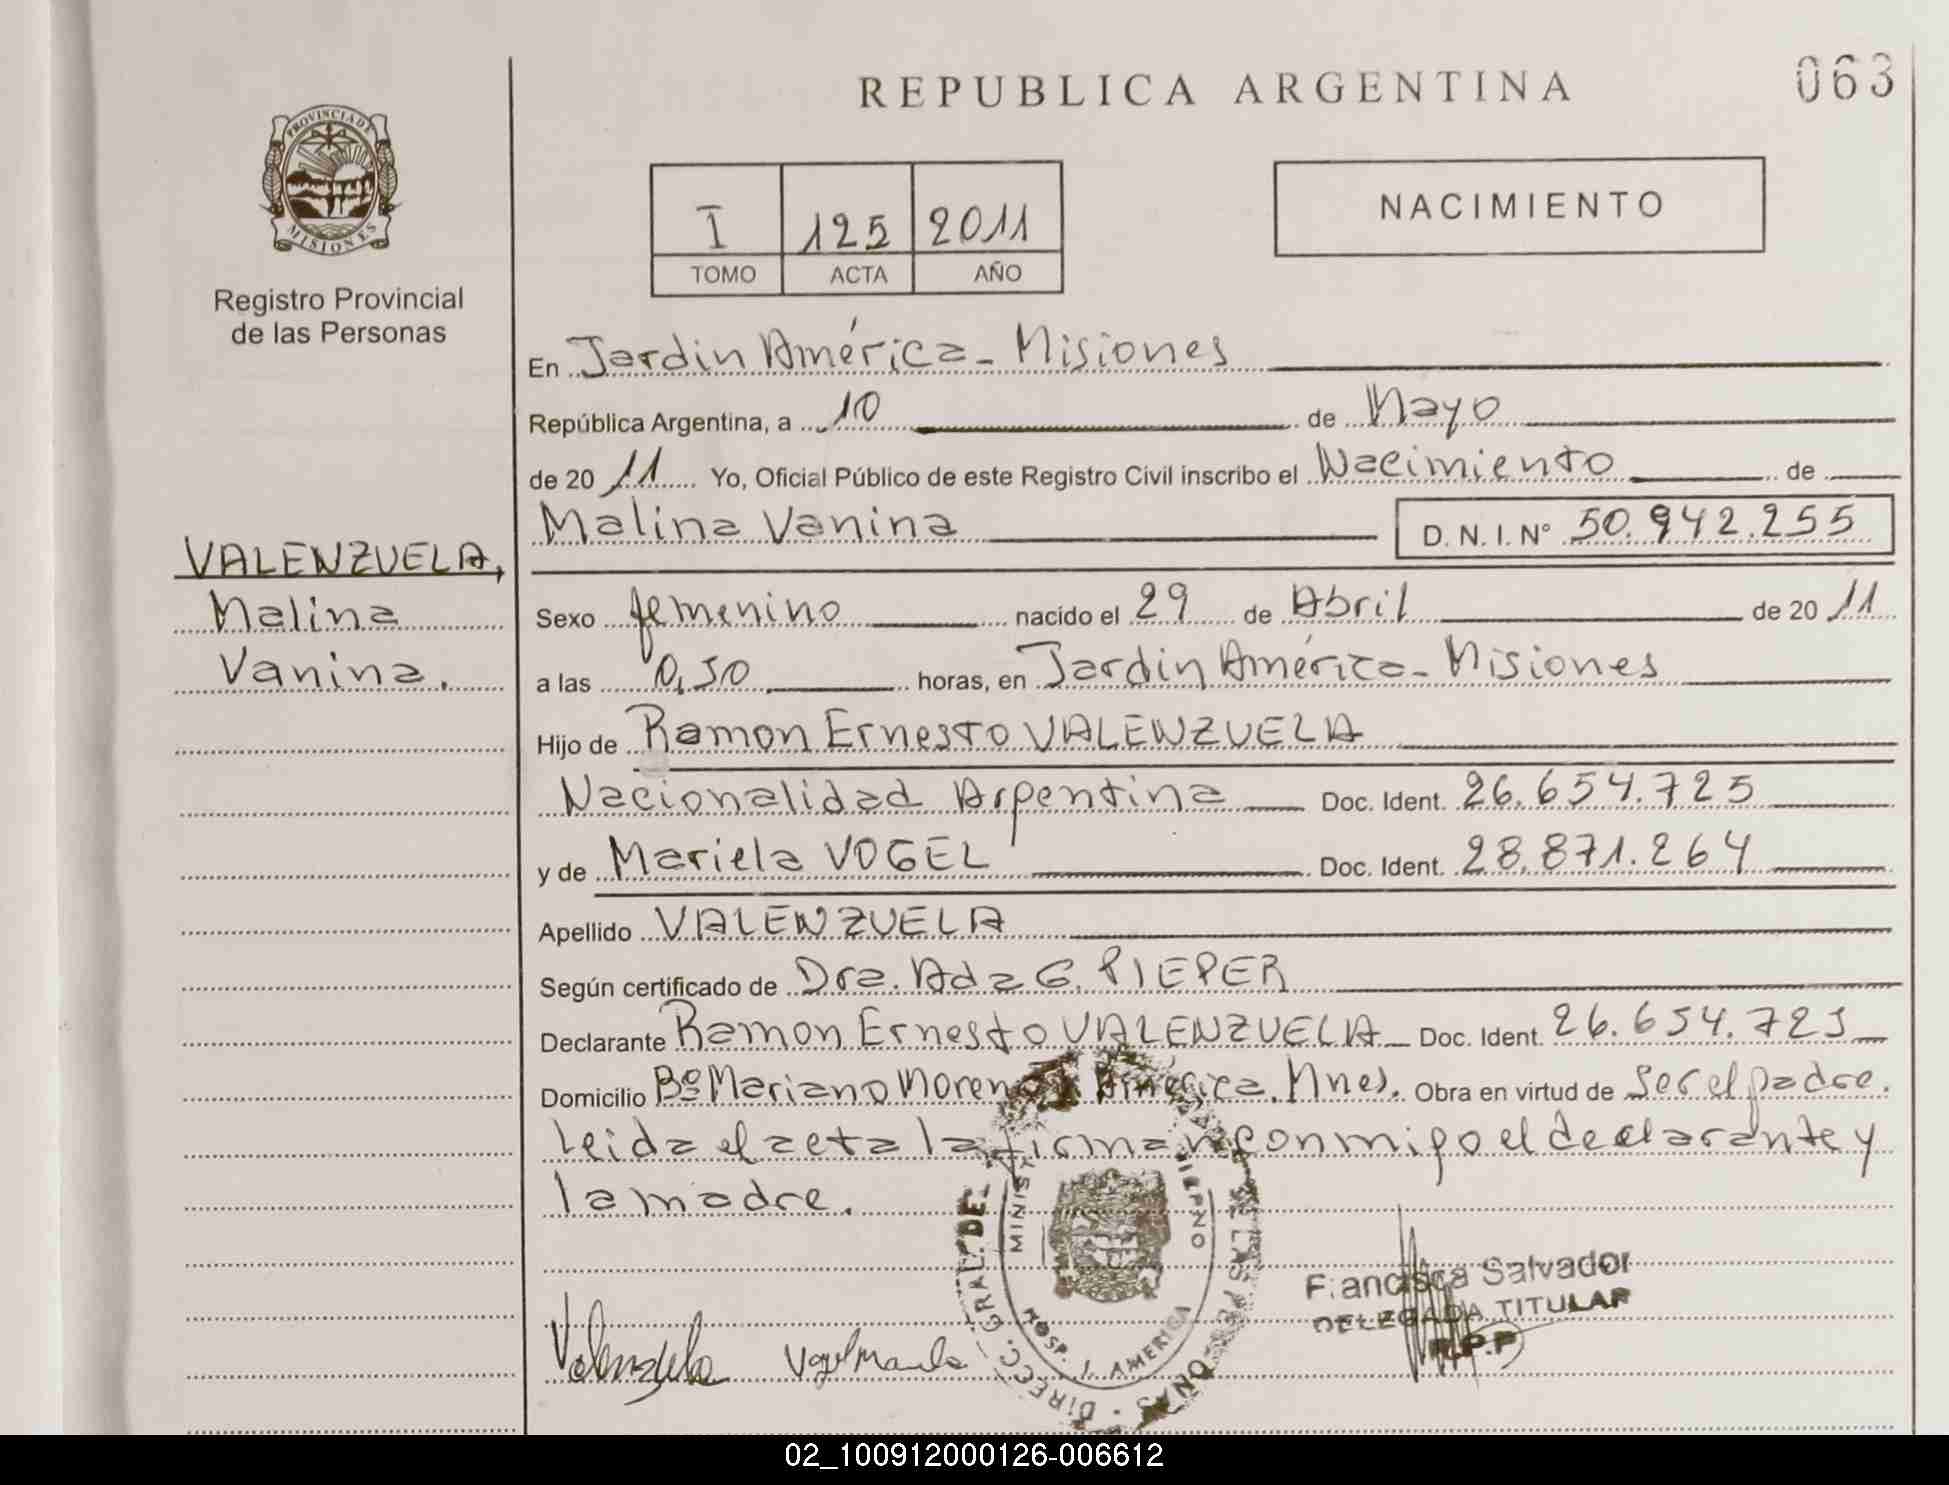 REPUBLICA ARGENTINA
063
PROVINCIA DE
MISIONES
Registro Provincial
de las Personas
I 125 2011
TOMO ACTA AÑO
NACIMIENTO
En Jardin América - Misiones
República Argentina, a 10 de Mayo
de 20 11 Yo, Oficial Público de este Registro Civil inscribo el Nacimiento de
Malina Vanina D.N.I. Nº 50.942.255
VALENZUELA,
Malina
Vanina.
Sexo femenino nacido el 29 de Abril de 20 11
a las 0,50 horas, en Jardin América - Misiones
Hijo de Ramon Ernesto VALENZUELA
Nacionalidad Argentina Doc. Ident. 26.654.725
y de Mariela VOGEL Doc. Ident. 28.871.264
Apellido VALENZUELA
Según certificado de Dra. Ada G. PIEPER
Declarante Ramon Ernesto VALENZUELA Doc. Ident. 26.654.725
Domicilio Bº Mariano Moreno J. América. Mnes. Obra en virtud de ser el padre.
Leida el acta la firman conmigo el declarante y
la madre.
DIRECC. GRAL. DE LAS PERSONAS
HOSP. J. AMERICA
Francisca Salvador
DELEGADA TITULAR
R.P.P
Valenzuela
02_100912000126-006612